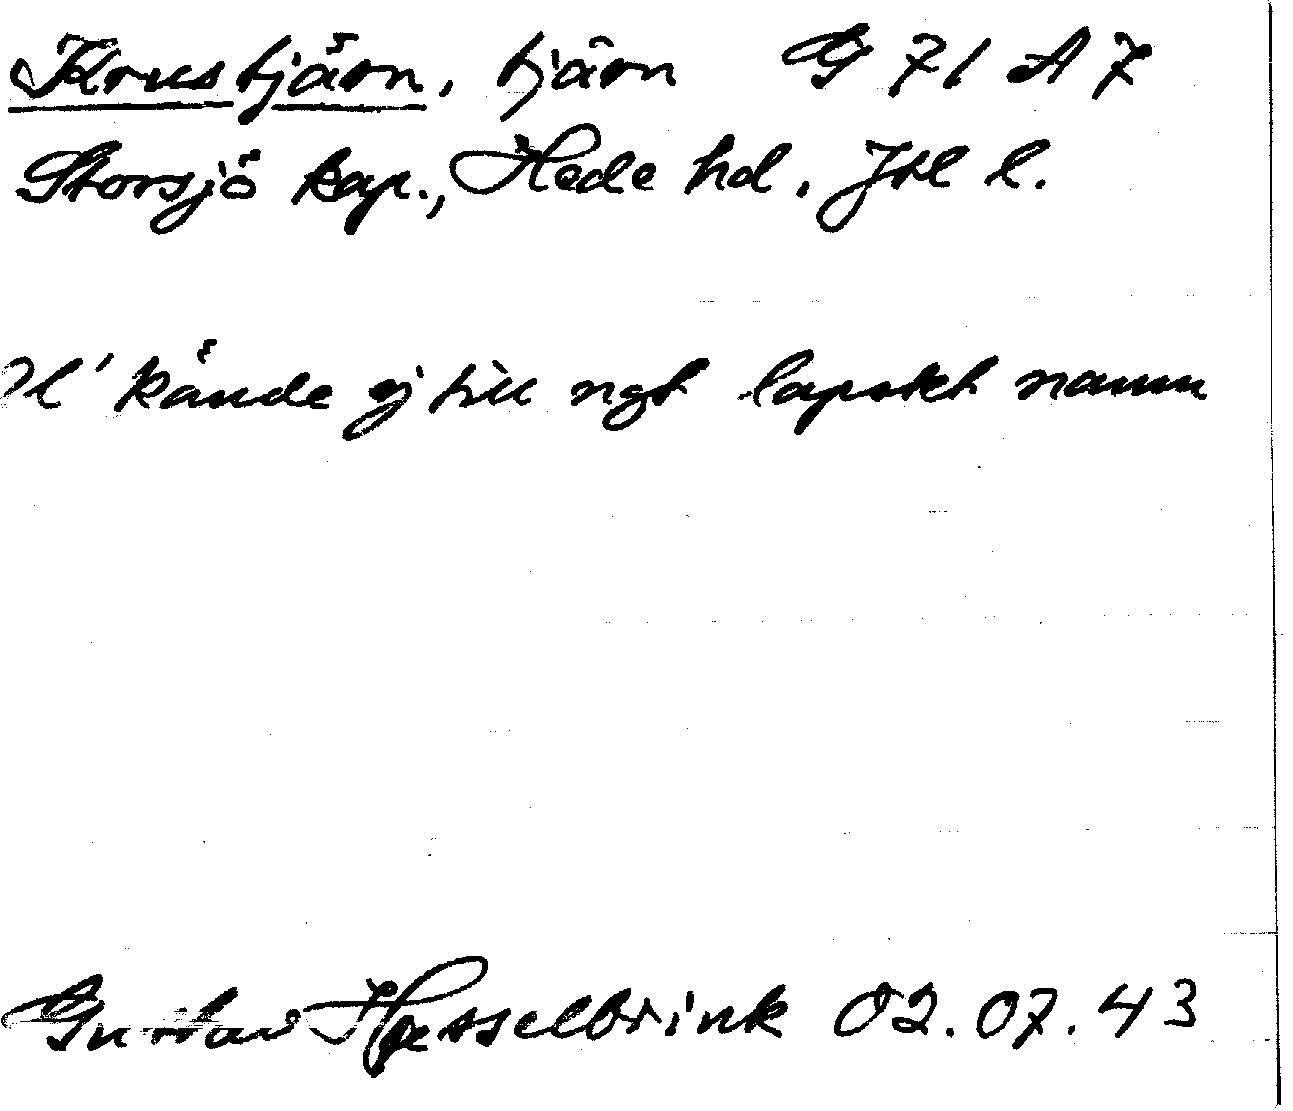 Krustjärn, tjärn G 71 A 7
Storsjö kap., Hede hd. Jtl l.
kände ej till ngt lapskt namn
Gustav Hasselbrink 02.07.43